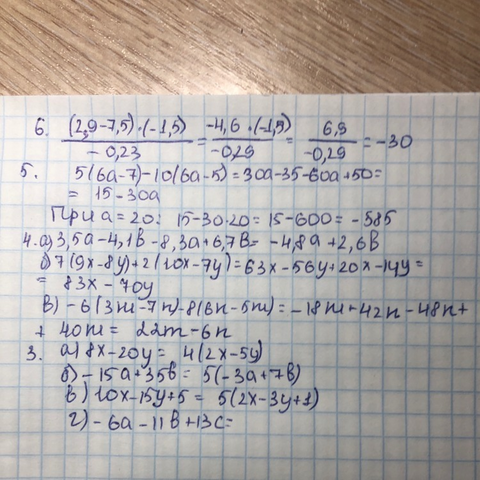 6. (2,9-7,5)·(-1,5)/-0,23 = -4,6·(-1,5)/-0,29 = 6,9/-0,29 = -30
5. 5(6a-7)-10(6a-5)=30a-35-60a+50=
= 15-30a
При a=20: 15-30·20=15-600=-585
4.а)3,5a-4,1в-8,3a+6,7в=-4,8a+2,6в
б)7(9x-8y)+2(10x-7y)=63x-56y+20x-14y=
= 83x-70y
в)-6(3m-7n)-8(6n-5m)=-18m+42n-48n+
+ 40m= 22m-6n
3. а)8x-20y= 4(2x-5y)
б)-15a+35в= 5(-3a+7в)
в)10x-15y+5= 5(2x-3y+1)
г)-6a-11в+13c=